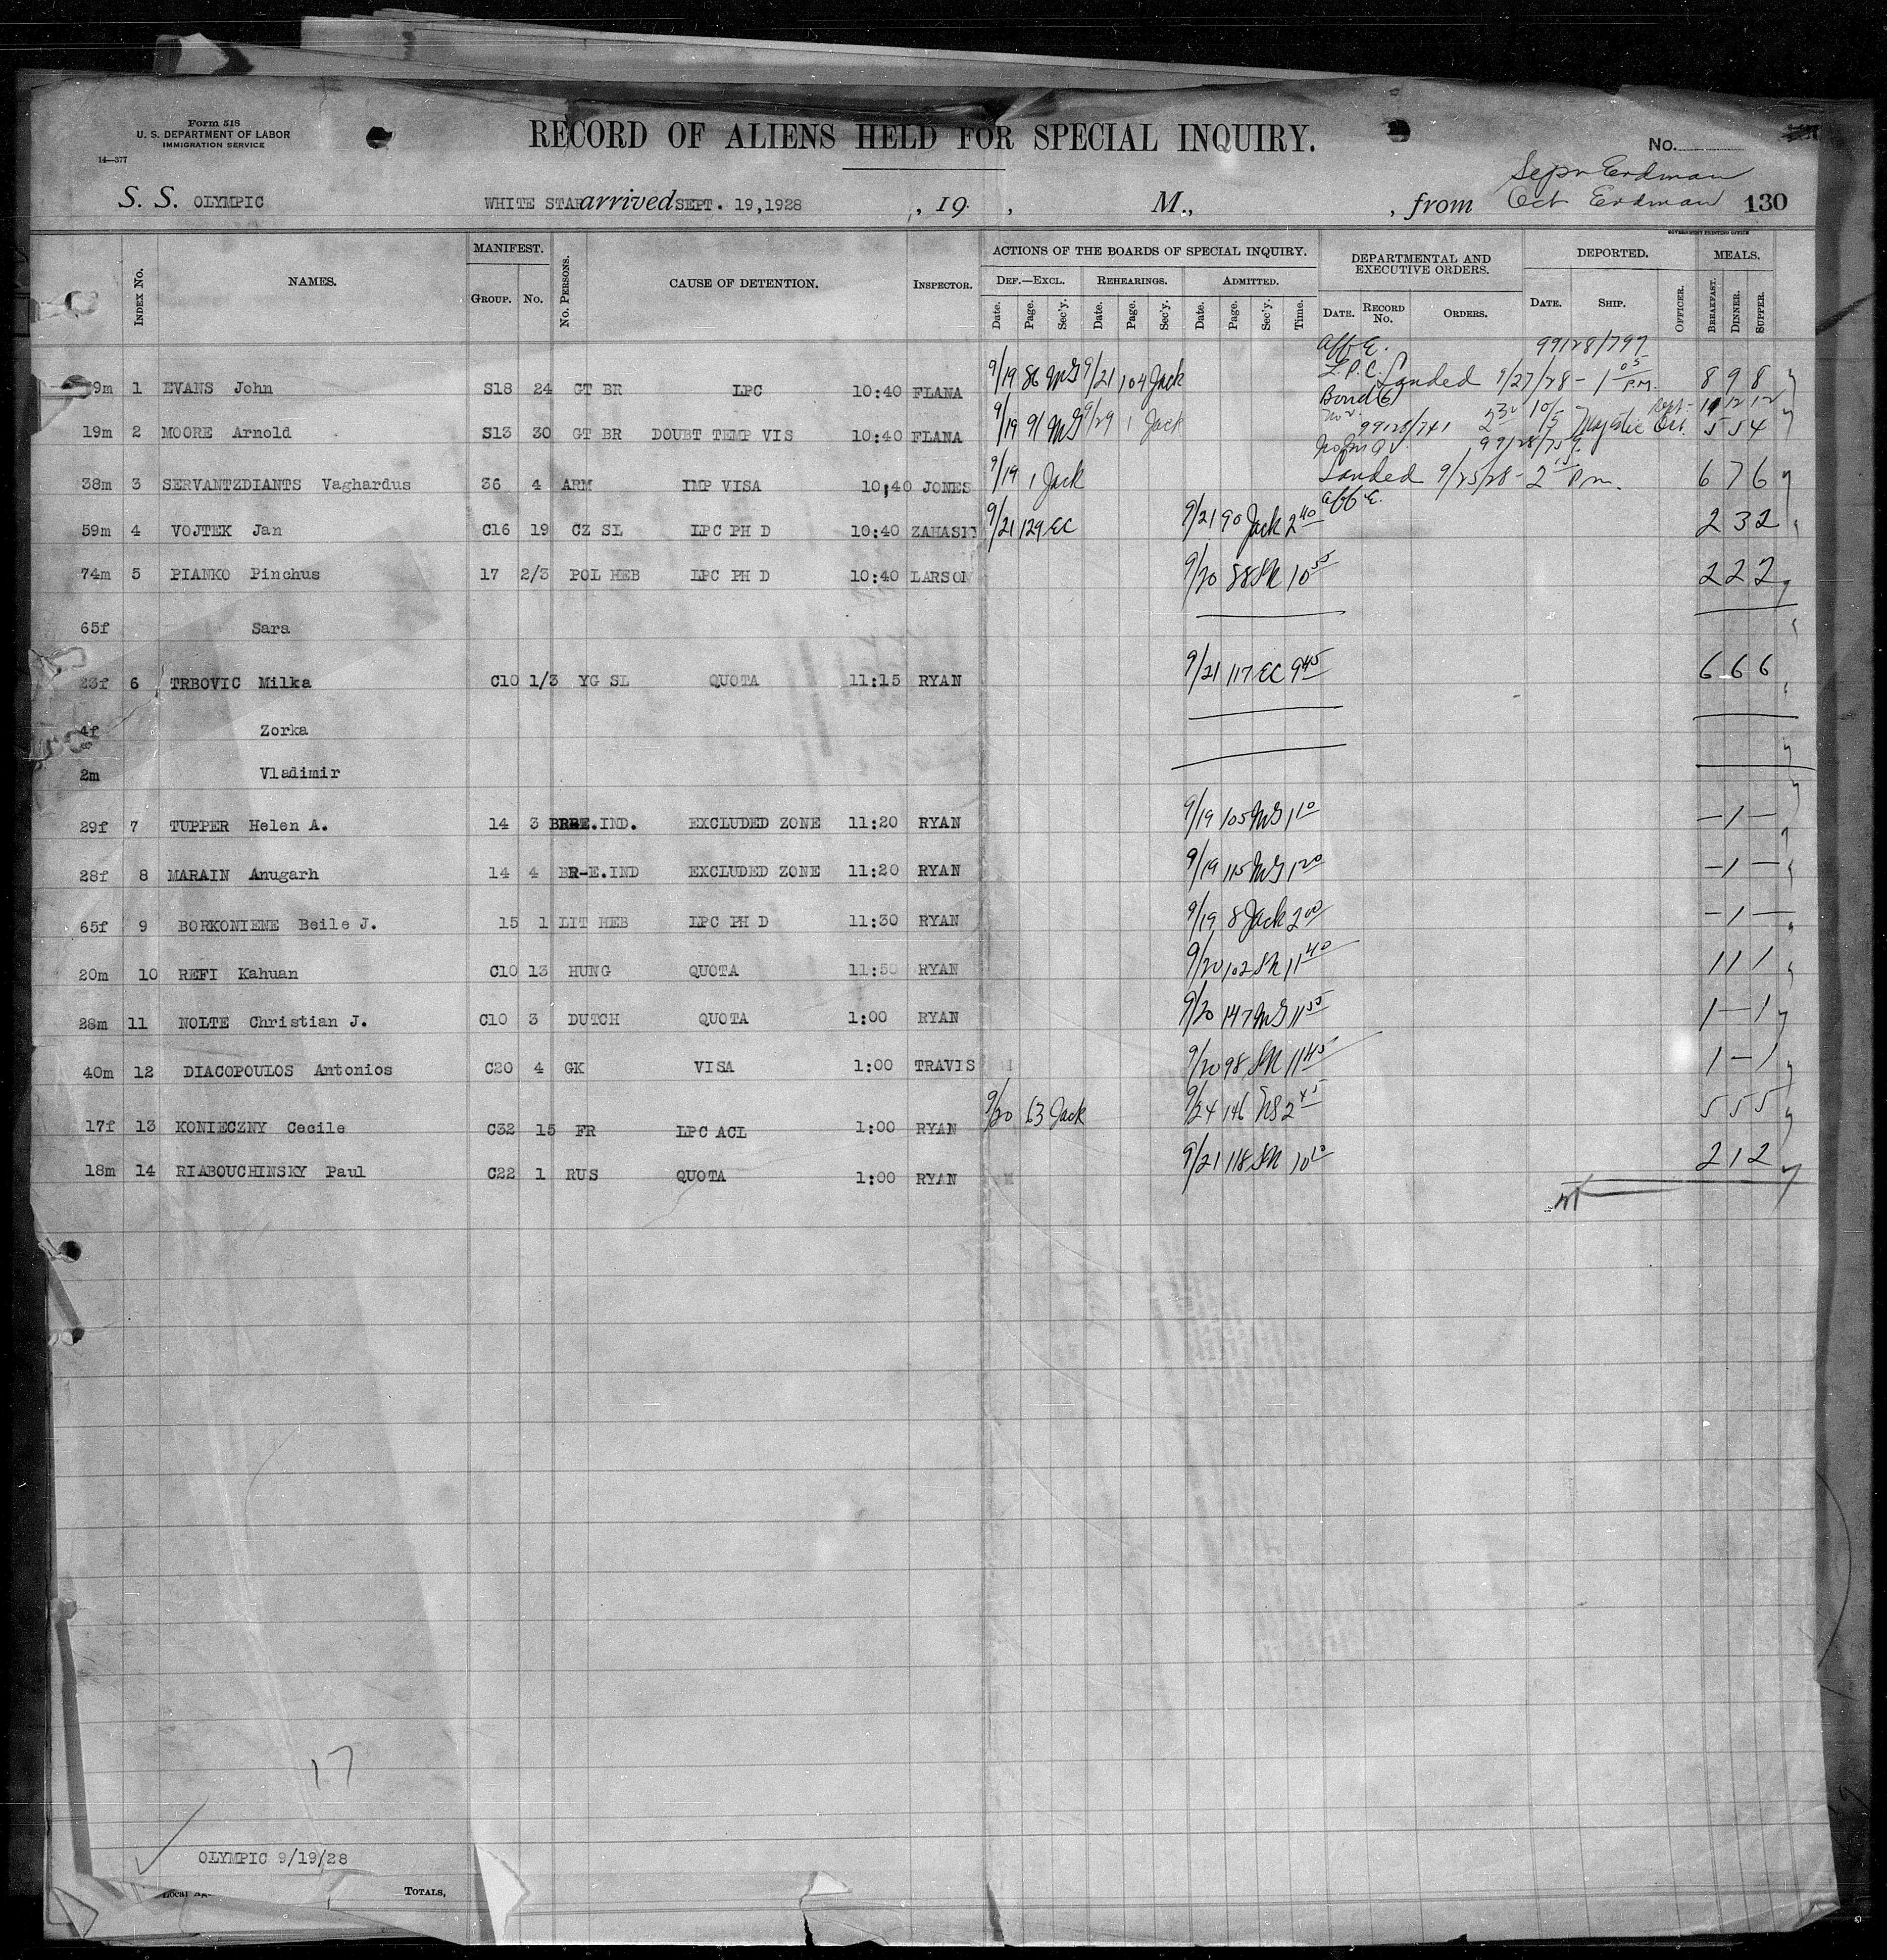 Form 518
U. S. DEPARTMENT OF LABOR
IMMIGRATION SERVICE
14—377
RECORD OF ALIENS HELD FOR SPECIAL INQUIRY.
No.
Erdman
S. S. OLYMPIC WHITE STAR arrived SEPT. 19,1928 , 19 , M., , from Oct Erdman 130
GOVERNMENT PRINTING OFFICE
INDEX NO. NAMES. MANIFEST. GROUP. NO. NO. PERSONS. CAUSE OF DETENTION. INSPECTOR. ACTIONS OF THE BOARDS OF SPECIAL INQUIRY. DEPARTMENTAL AND EXECUTIVE ORDERS. DEPORTED. MEALS.
DEF.—EXCL. REHEARINGS. ADMITTED.
Date. Page. Sec'y. Date. Page. Sec'y. Date. Page. Sec'y. Time. DATE. RECORD NO. ORDERS. DATE. SHIP. OFFICER. BREAKFAST. DINNER. SUPPER.
Aff E. 99128/797
L.P.C.
9m 1 EVANS John S18 24 GT BR LPC 10:40 FLANA 9/19 86 MG 9/21 104 Jack Landed 9/27/28 - 1 05 P.M. 8 9 8
Bond Sept- 11 12 12
19m 2 MOORE Arnold S13 30 GT BR DOUBT TEMP VIS 10:40 FLANA 9/19 91 MG 9/29 1 Jack 99128/741 10/5 Majestic Oct. 5 5 4
99128/759
38m 3 SERVANTZDIANTS Vaghardus 36 4 ARM IMP VISA 10,40 JONES 9/19 1 Jack Landed 9/25/28 - 2 15 P.m. 6 7 6
Aff E.
59m 4 VOJTEK Jan C16 19 CZ SL LPC PH D 10:40 ZAHASIN 9/21 129 EC 9/21 90 Jack 2 40 2 3 2
74m 5 PIANKO Pinchus 17 2/3 POL HEB LPC PH D 10:40 LARSON 9/20 88 SK 10 55 2 2 2
65f Sara
23f 6 TRBOVIC Milka C10 1/3 YG SL QUOTA 11:15 RYAN 9/21 117 EC 9 45 6 6 6
4f Zorka
2m Vladimir
29f 7 TUPPER Helen A. 14 3 BRBE.IND. EXCLUDED ZONE 11:20 RYAN 9/19 105 MG 1 10 - 1 -
28f 8 MARAIN Anugarh 14 4 BR-E.IND EXCLUDED ZONE 11:20 RYAN 9/19 115 MG 1 20 - 1 -
65f 9 BORKONIENE Beile J. 15 1 LIT HEB LPC PH D 11:30 RYAN 9/19 8 Jack 2 00 - 1 -
20m 10 REFI Kahuan C10 13 HUNG QUOTA 11:50 RYAN 9/20 102 SK 11 40 1 1 1
28m 11 NOLTE Christian J. C10 3 DUTCH QUOTA 1:00 RYAN 9/20 147 MG 11 55 1 - 1
40m 12 DIACOPOULOS Antonios C20 4 GK VISA 1:00 TRAVIS 9/20 98 SK 11 45 1 - 1
17f 13 KONIECZNY Cecile C32 15 FR LPC ACL 1:00 RYAN 9/20 63 Jack 9/24 146 2 45 5 5 5
18m 14 RIABOUCHINSKY Paul C22 1 RUS QUOTA 1:00 RYAN 9/21 118 SK 10 10 2 1 2
17
OLYMPIC 9/19/28
TOTALS,